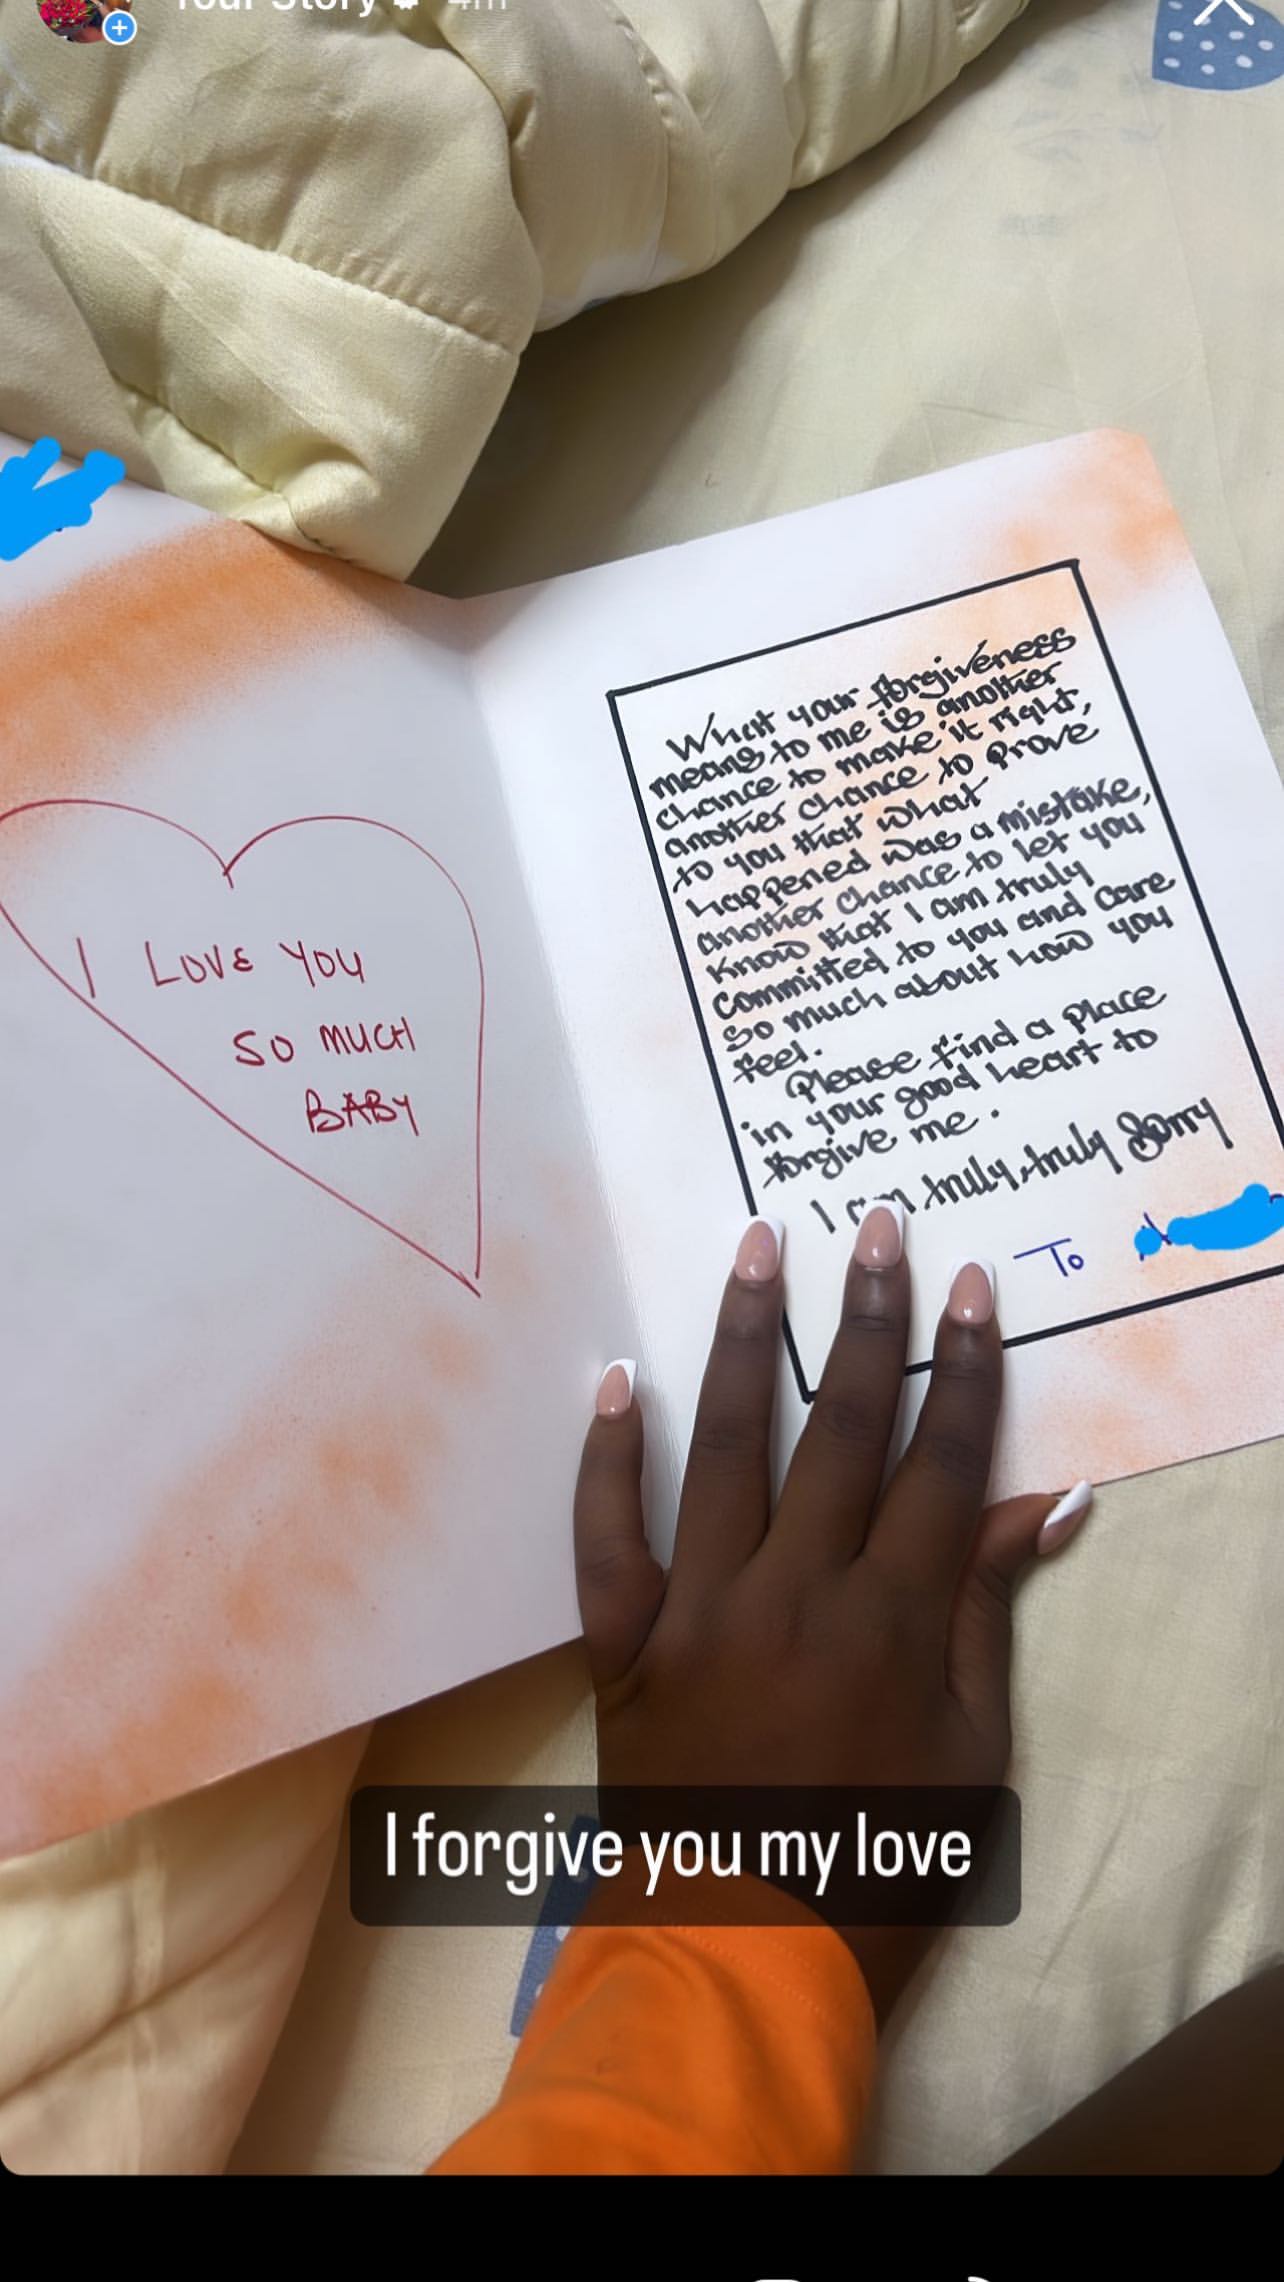 Your Story 4m
I LOVE YOU
SO MUCH
BABY
What your forgiveness
means to me is another
chance to make it right,
another chance to prove
to you that what
happened was a mistake,
another chance to let you
know that I am truly
committed to you and care
so much about how you
feel.
Please find a place
in your good heart to
forgive me.
I am truly, truly Sorry
To
I forgive you my love